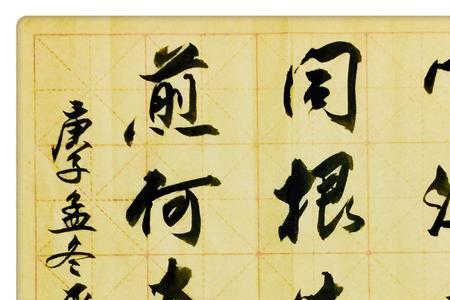 同根
煎何
庚子孟冬